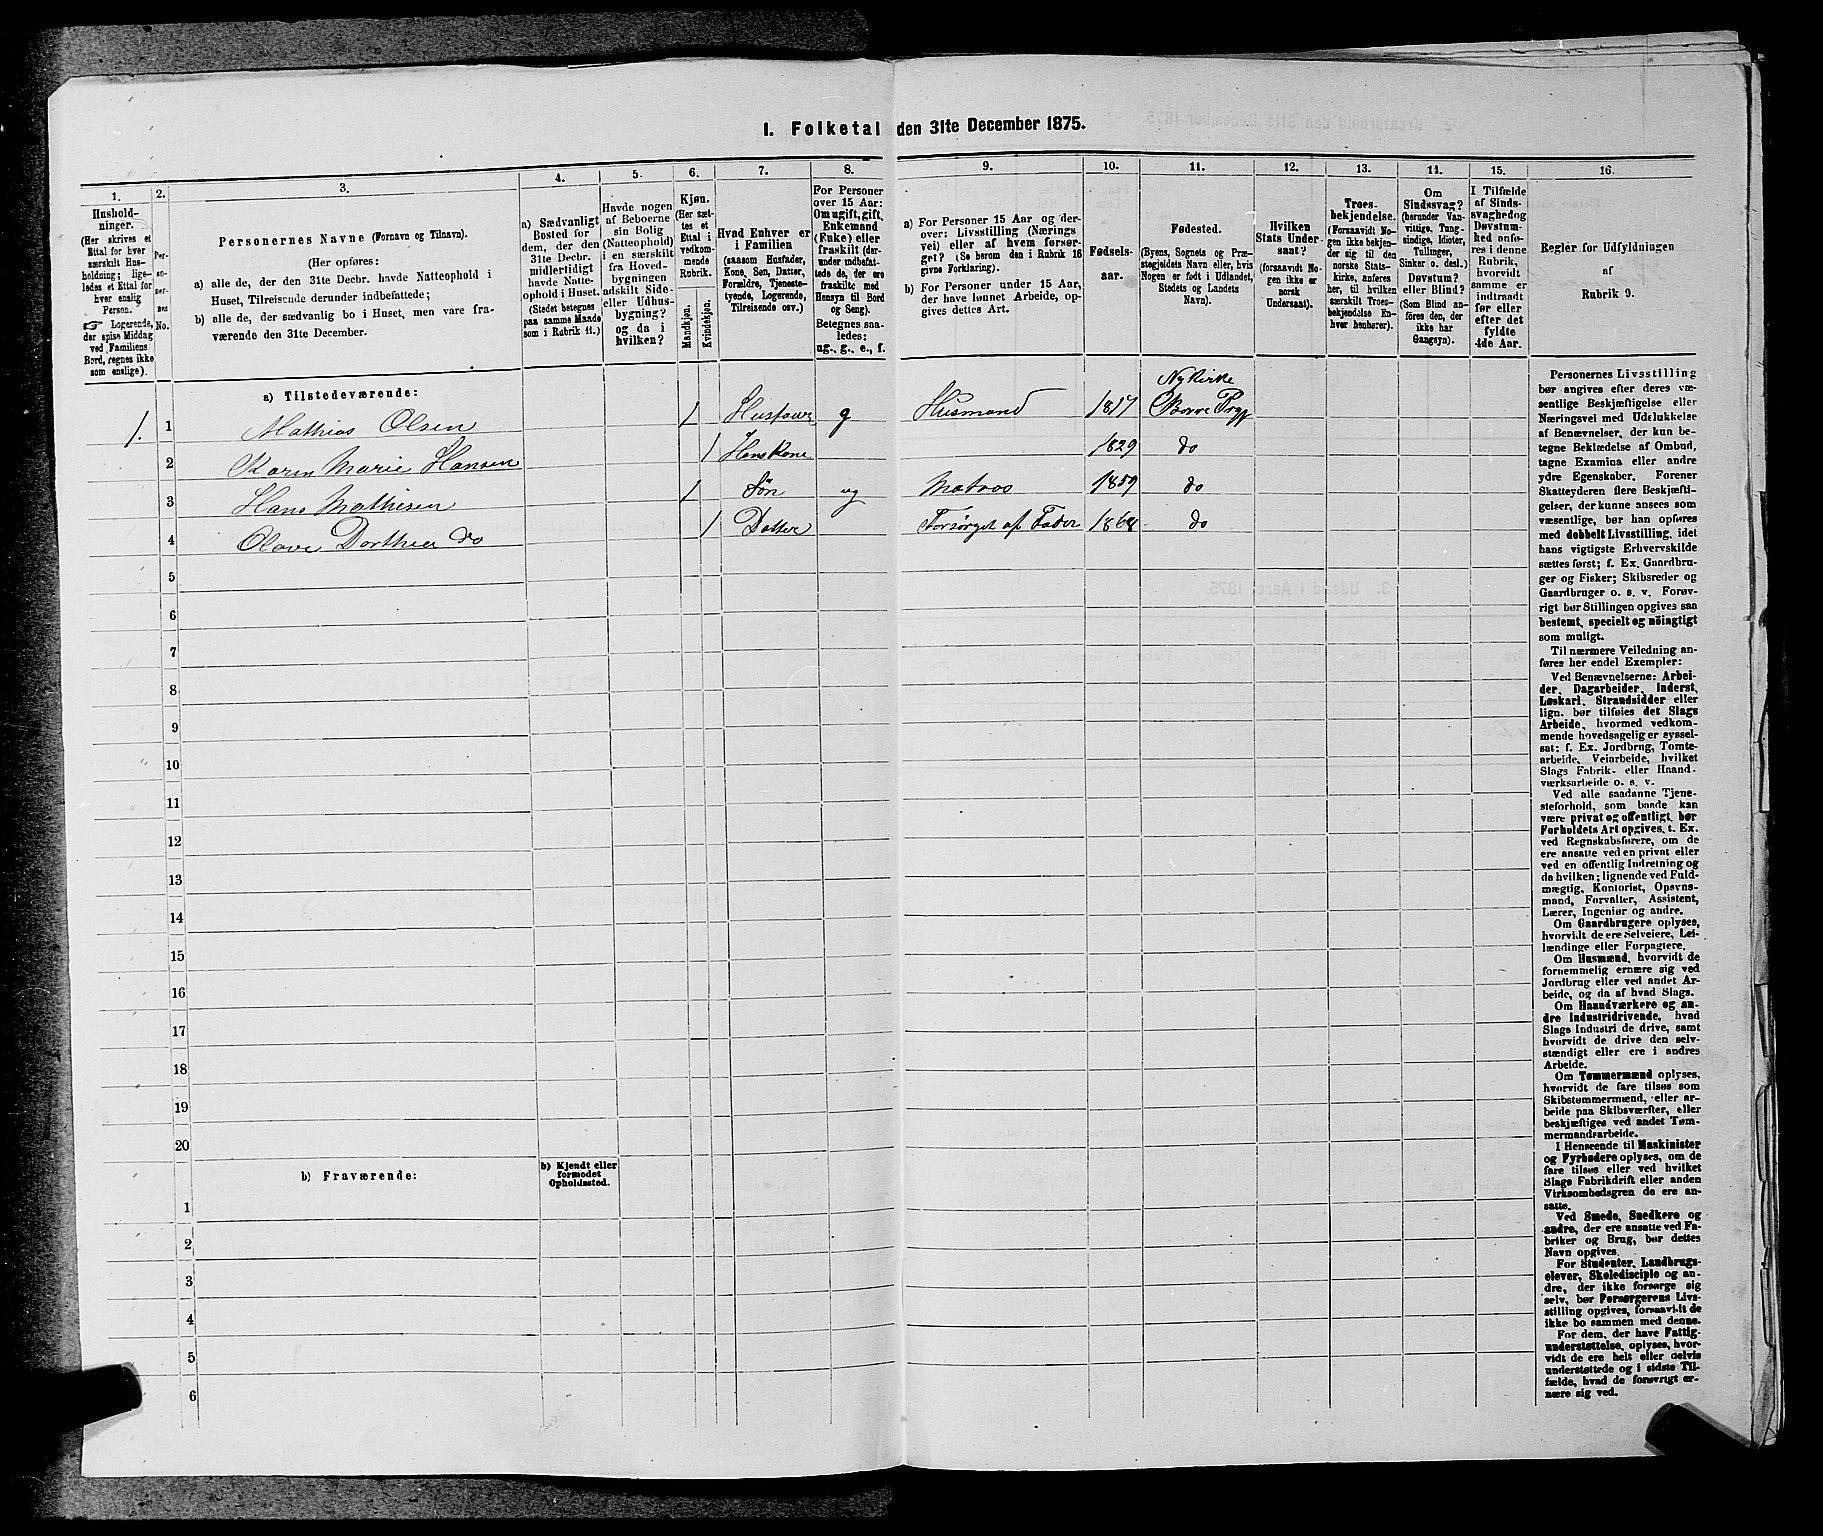 I. Folketal den 31te December 1875.
1.
Hushold-
ninger.
(Her skrives et
Ettal for hver
særskilt Hus-
holdning; lige-
ledes et Ettal for
hver enslig
Person.
☞ Logerende,
der spise Middag
ved Familiens
Bord, regnes ikke
som enslige).
2.
Per-
so-
ner-
nes
No.
3.
Personernes Navne (Fornavn og Tilnavn).
(Her opføres:
a) alle de, der den 31te Decbr. havde Natteophold i
Huset, Tilreisende derunder indbefattede;
b) alle de, der sædvanlig bo i Huset, men vare fra-
værende den 31te December.
4.
a) Sædvanligt
Bosted for
dem, der den
31te Decbr.
midlertidigt
havde Natte-
ophold i Huset.
(Stedet betegnes
paa samme Maade
som i Rubrik 11.)
5.
Havde nogen
af Beboerne
sin Bolig
(Natteophold)
i en særskilt
fra Hoved-
bygningen
adskilt Side-
eller Udhus-
bygning?
og da i
hvilken?
6.
Kjøn.
(Her sæt-
tes et
Ettal i
vedkom-
mende
Rubrik.
Mandkjøn.
Kvindekjøn.
7.
Hvad Enhver er
i Familien
(saasom Husfader,
Kone, Søn, Datter,
Forældre, Tjeneste-
tyende, Logerende,
Tilreisende osv.)
8.
For Personer
over 15 Aar:
Om ugift, gift,
Enkemand
(Enke) eller
fraskilt (der-
under indbefat-
tede de, der ere
fraskilte med
Hensyn til Bord
og Seng).
Betegnes saa-
ledes:
ug., g., e., f.
9.
a) For Personer 15 Aar og der-
over: Livsstilling (Nærings
vei) eller af hvem forsør-
get? (Se borem den i Rubrik 16
givne Forklaring).
b) For Personer under 15 Aar,
der have lønnet Arbeide, op-
gives dettes Art.
10.
Fødsels-
aar.
11.
Fødested.
(Byens, Sognets og Præ-
stegjeldets Navn eller, hvis
Nogen er født i Udlandet,
Stedets og Landets
Navn).
12.
Hvilken
Stats Under-
saat?
(forsaavidt No-
gen ikke er
norsk
Undersaat).
13.
Troes-
bekjendelse.
(Forsaavidt No-
gen ikke bekjen-
der sig til den
norske Stats-
kirke, anføres
her, til hvilken
særskilt Troes-
bekjendelse En-
hver henhører).
14.
Om
Sindssvag?
(herunder Van-
vittige, Tung-
sindige, Idioter,
Tullinger,
Sinker o. desl.)
Døvstum?
eller Blind?
(Som Blind an-
føres den, der
ikke har
Gangsyn).
15.
I Tilfælde
af Sinds-
svaghed og
Døvstum-
hed anfø-
res i denne
Rubrik,
hvorvidt
samme er
indtraadt
før eller
efter det
fyldte
4de Aar.
16.
Regler for Udfyldningen
af
Rubrik 9.
a) Tilstedeværende:
1. 1 Mathias Olsen 1 Husfader g Husmand 1817 Nykirke Borre Prgj
2 Karen Marie Hansen 1 Hans Kone 1829 do
3 Hans Mathisen 1 Søn ug Matros 1859 do
4 Olave Dorthea do 1 Datter Forsørget af Fader 1868 do
5
6
7
8
9
10
11
12
13
14
15
16
17
18
19
20
b) Fraværende:
b) Kjendt eller
formodet
Opholdssted.
1
2
3
4
5
6
Personernes Livsstilling
bør angives efter deres væ-
sentlige Beskjæftigelse eller
Næringsvei med Udelukkelse
af Benævnelser, der kun be-
tegne Beklædelse af Ombud,
tagne Examina eller andre
ydre Egenskaber. Forener
Skatteyderen flere Beskjæfti-
gelser, der kunne ansees som
væsentlige, bør han opføres
med dobbelt Livsstilling, idet
hans vigtigste Erhvervskilde
sættes først; f. Ex. Gaardbru-
ger og Fisker; Skibsreder og
Gaardbruger o. s. v. Forøv-
rigt bør Stillingen opgives saa
bestemt, specielt og nöiagtigt
som muligt.
Til nærmere Veiledning an-
føres her endel Exempler:
Ved Benævnelserne: Arbei-
der, Dagarbeider, Inderst,
Løskarl, Strandsidder eller
lign. bør tilføies det Slags
Arbeide, hvormed vedkom-
mende hovedsagelig er syssel-
sat; f. Ex. Jordbrug, Tomte-
arbeide, Veiarbeide, hvilket
Slags Fabrik- eller Haand-
værksarbeide o. s. v.
Ved alle saadanne Tjene-
steforhold, som baade kan
være privat og offentligt, bør
Forholdets Art opgives, t. Ex.
ved Regnskabsførere, om de
ere ansatte ved en privat eller
ved en offentlig Indretning og
da hvilken; lignende ved Fuld-
mægtig, Kontorist, Opsyns-
mand, Forvalter, Assistent,
Lærer, Ingeniør og andre.
Om Gaardbrugere oplyses,
hvorvidt de ere Selveiere, Lei-
lændinge eller Forpagtere.
Om Husmænd, hvorvidt de
fornemmelig ernære sig ved
Jordbrug eller ved andet Ar-
beide, og da af hvad Slags.
Om Haandværkere og an-
dre Industridrivende, hvad
Slags Industri de drive, samt
hvorvidt de drive den selv-
stændigt eller ere i andres
Arbeide.
Om Tømmermænd oplyses,
hvorvidt de fare tilsøs som
Skibstømmermænd, eller ar-
beide paa Skibsværfter, eller
beskjæftiges ved andet Tøm-
mermandsarbeide.
I Henseende til Maskinister
og Fyrbødere oplyses, om de
fare tilsøs eller ved hvilket
Slags Fabrikdrift eller anden
Virksombedsgren de ere an-
satte.
Ved Smede, Snedkere og
andre, der ere ansatte ved Fa-
briker og Brug, bør dettes
Navn opgives.
For Studenter, Landbrugs-
elever, Skoledisciple og an-
dre, der ikke forsørge sig
selv, bør Forsørgerens Livs-
stilling opgives, forsaavidt de
ikke bo sammen med denne.
For dem, der have Fattig-
understøttelse, oplyses, hvor-
vidt de ere helt eller delvis
understøttede og i sidste Til-
fælde, hvad de forøvrigt er-
nære sig ved.